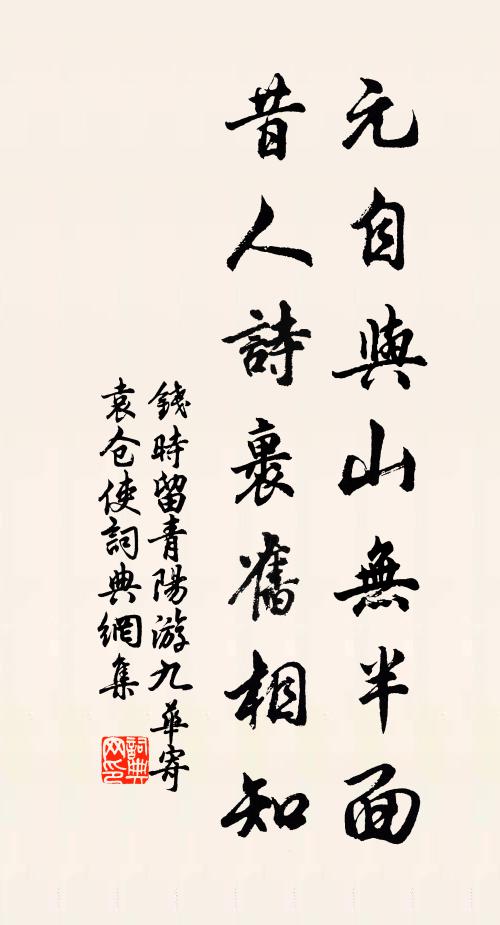 元自與山無半面
昔人詩裏舊相知
錢時留青陽游九華寄
袁仓使詞典網集
詞典
网印